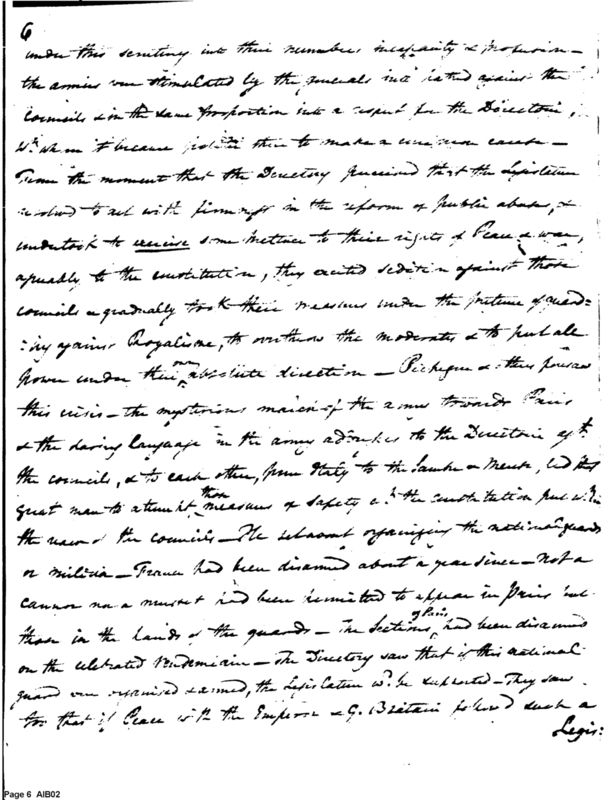 6
under this scrutiny into their numbers incapacity & profusion –
the armies were stimulated by the generals into hatred against the
Councils & in the same proportion into a respect for the Directoire,
wth whom it became their to make a common cause –
From the moment that the Directory perceived that the Legislature
resolved to act with firmness in the reform of public abuse, &
undertook to exercise some pretence to their rights of Peace & war,
agreeably to the constitution, they excited sedition against those
councils & gradually took their measures under the pretence of guard-
:ing against Royalisme, to overthrow the moderates & to put all
power under their own absolute direction – Pichegru & others foresaw
this crisis – the mysterious march of the armies towards Paris
& the daring language in the army addresses to the Directoire agst
the councils, & to each other, from Italy to the Sambre & Meuse, led this
great man to attempt those measures of safety wh the constitution put wthin
the reach of the councils – He set about organizing the national guards
or militia – France had been disarmed about a year since – Not a
cannon nor a musket had been permitted to appear in Paris but
those in the hands of the guards – The Sections of Paris had been disarmed
on the celebrated Vendemiaire – The Directory saw that if this national
guard were organised & armed, the Legislature wd be supported – They saw
too that if Peace with the Emperor & G. Britain followed such a
Legis:
Page 6 AIB02